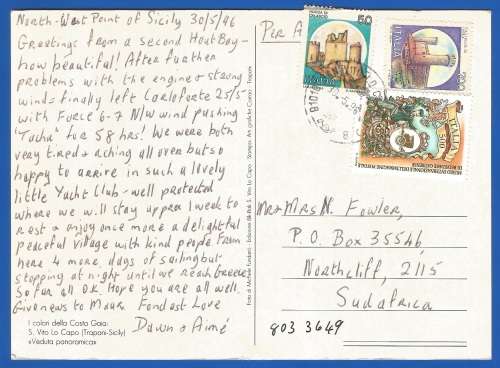 North-West Point of Sicily 30/5/96
Greetings from a second Hout Bay -
how beautiful! After further
problems with the engine & strong
winds finally left Carloforte 25/5
with Force 6-7 N/W wind pushing
for 58 hrs! We were both
very tired & aching all over but so
happy to arrive in such a lovely
little Yacht Club - well protected
where we will stay approx 1 week to
rest & enjoy once more a delightful
peaceful village with kind people. From
here 4 more days of sailing but
stopping at night until we reach Greece
So far all O.K. Hope you are all well.
Give news to Fondest Love
Dawn & Aimé
I colori della Costa Gaia:
S. Vito Lo Capo (Trapani-Sicily)
«Veduta panoramica»
Per A
50
ITALIA
ITALIA
500
Mr & Mrs N. Fowler,
P.O. Box 35546
Northcliff, 2115
Sudafrica
803 3649